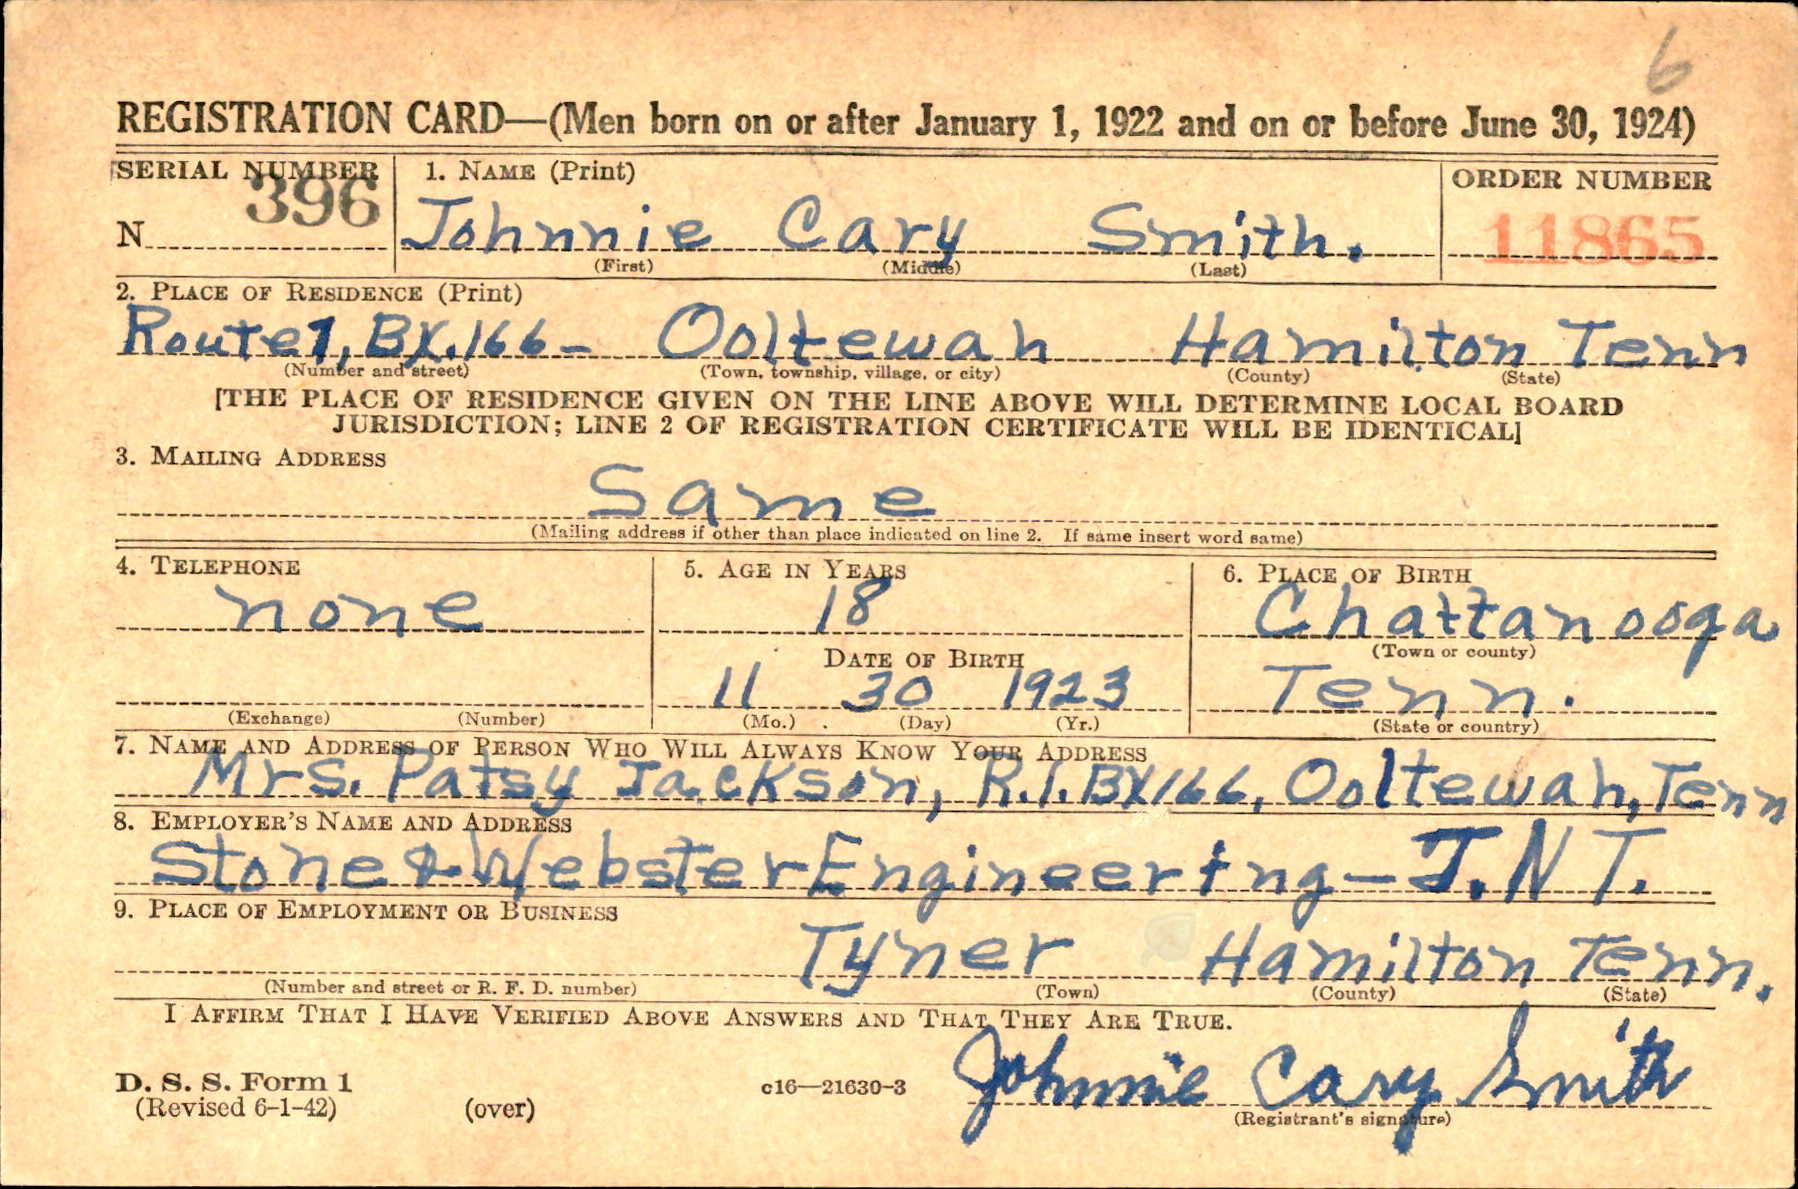 6
REGISTRATION CARD—(Men born on or after January 1, 1922 and on or before June 30, 1924)
SERIAL NUMBER 1. NAME (Print) ORDER NUMBER
N 396 Johnnie Cary Smith. 11865
(First) (Middle) (Last)
2. PLACE OF RESIDENCE (Print)
Route 1, BX.166- Ooltewah Hamilton Tenn
(Number and street) (Town, township, village, or city) (County) (State)
[THE PLACE OF RESIDENCE GIVEN ON THE LINE ABOVE WILL DETERMINE LOCAL BOARD
JURISDICTION; LINE 2 OF REGISTRATION CERTIFICATE WILL BE IDENTICAL]
3. MAILING ADDRESS
Same
(Mailing address if other than place indicated on line 2. If same insert word same)
4. TELEPHONE 5. AGE IN YEARS 6. PLACE OF BIRTH
none 18 Chattanooga
(Town or county)
DATE OF BIRTH
11 30 1923 Tenn.
(Exchange) (Number) (Mo.) (Day) (Yr.) (State or country)
7. NAME AND ADDRESS OF PERSON WHO WILL ALWAYS KNOW YOUR ADDRESS
Mrs. Patsy Jackson, R.1.BX166, Ooltewah, Tenn
8. EMPLOYER'S NAME AND ADDRESS
Stone & Webster Engineering - T.N.T.
9. PLACE OF EMPLOYMENT OR BUSINESS
Tyner Hamilton Tenn.
(Number and street or R. F. D. number) (Town) (County) (State)
I AFFIRM THAT I HAVE VERIFIED ABOVE ANSWERS AND THAT THEY ARE TRUE.
D. S. S. Form 1 c16—21630-3 Johnnie Cary Smith
(Revised 6-1-42) (over) (Registrant's signature)